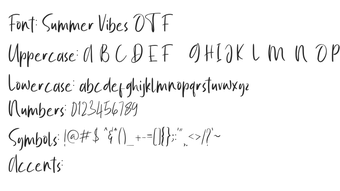 Font: Summer Vibes OTF
Uppercase: A B C D E F G H I J K L M N O P
Lowercase: abcdefghijklmnopqrstuvwxyz
Numbers: 0123456789
Symbols: !@#$ ^&*()_+-=[]{};:'",.<>/?`~
Accents: